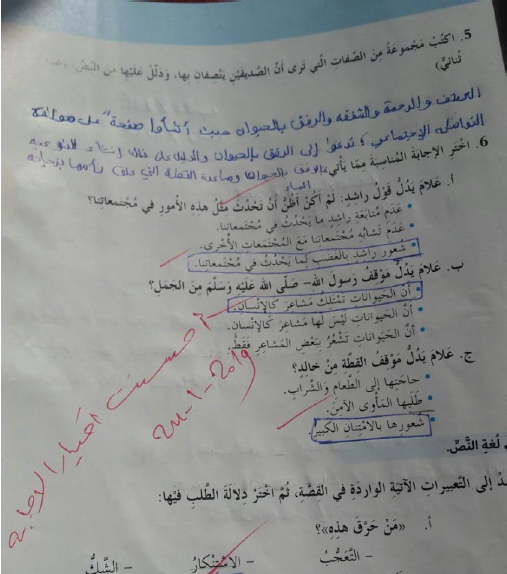 5. اكتُبْ مَجْموعَةً مِنَ الصِّفاتِ الَّتي تَرى أنَّ الصَّديقَيْنِ يَتَّصِفانِ بِها، وَدَلِّلْ عَلَيْها مِنَ النَّصِّ،
ثُنائيٌّ)
العطف والرحمة والشفقه والرفق بالحيوان حيث أنشأوا صفحة على مواقع
التواصل الاجتماعي تدعوا إلى الرفق بالحيوان والدليل على ذلك
6. اخْتَرِ الإجابَةَ المُناسِبَةَ مِمّا يَأْتي:
أ. عَلامَ يَدُلُّ قَوْلُ راشِدٍ: لَمْ أَكُنْ أَظُنُّ أَنْ تَحْدُثَ مِثْلُ هذِهِ الأُمورِ في مُجْتَمَعاتِنا؟
• عَدَمُ مُتابَعَةِ راشِدٍ ما يَحْدُثُ في مُجْتَمَعاتِنا.
• عَدَمُ تَشابُهِ مُجْتَمَعاتِنا مَعَ المُجْتَمَعاتِ الأُخْرى.
• شُعورُ راشِدٍ بِالغَضَبِ لِما يَحْدُثُ في مُجْتَمَعاتِنا.
ب. عَلامَ يَدُلُّ مَوْقِفُ رَسولِ اللهِ- صَلّى اللهُ عَلَيْهِ وَسَلَّمَ مِنَ الجَمَلِ؟
• أَنَّ الحَيَواناتِ تَمْتَلِكُ مَشاعِرَ كَالإِنْسانِ.
• أَنَّ الحَيَواناتِ لَيْسَ لَها مَشاعِرُ كَالإِنْسانِ.
• أَنَّ الحَيَواناتِ تَشْعُرُ بِبَعْضِ المَشاعِرِ فَقَطْ.
ج. عَلامَ يَدُلُّ مَوْقِفُ القِطَّةِ مِنْ خالِدٍ؟
• حاجَتِها إلى الطَّعامِ وَالشَّرابِ.
• طَلَبِها المَأْوى الآمِنَ.
• شُعورِها بِالامْتِنانِ الكَبيرِ.
أحسنت أختيار الاجابه
2019-1-
لُغَةِ النَّصِّ.
إلى التَّعْبيراتِ الآتِيَةِ الوارِدَةِ في القِصَّةِ، ثُمَّ اخْتَرْ دِلالَةَ الطَّلَبِ فيها:
أ. «مَنْ حَرَقَ هذِهِ»؟
– التَّعَجُّبُ – الاسْتِنْكارُ – الشَّكُّ